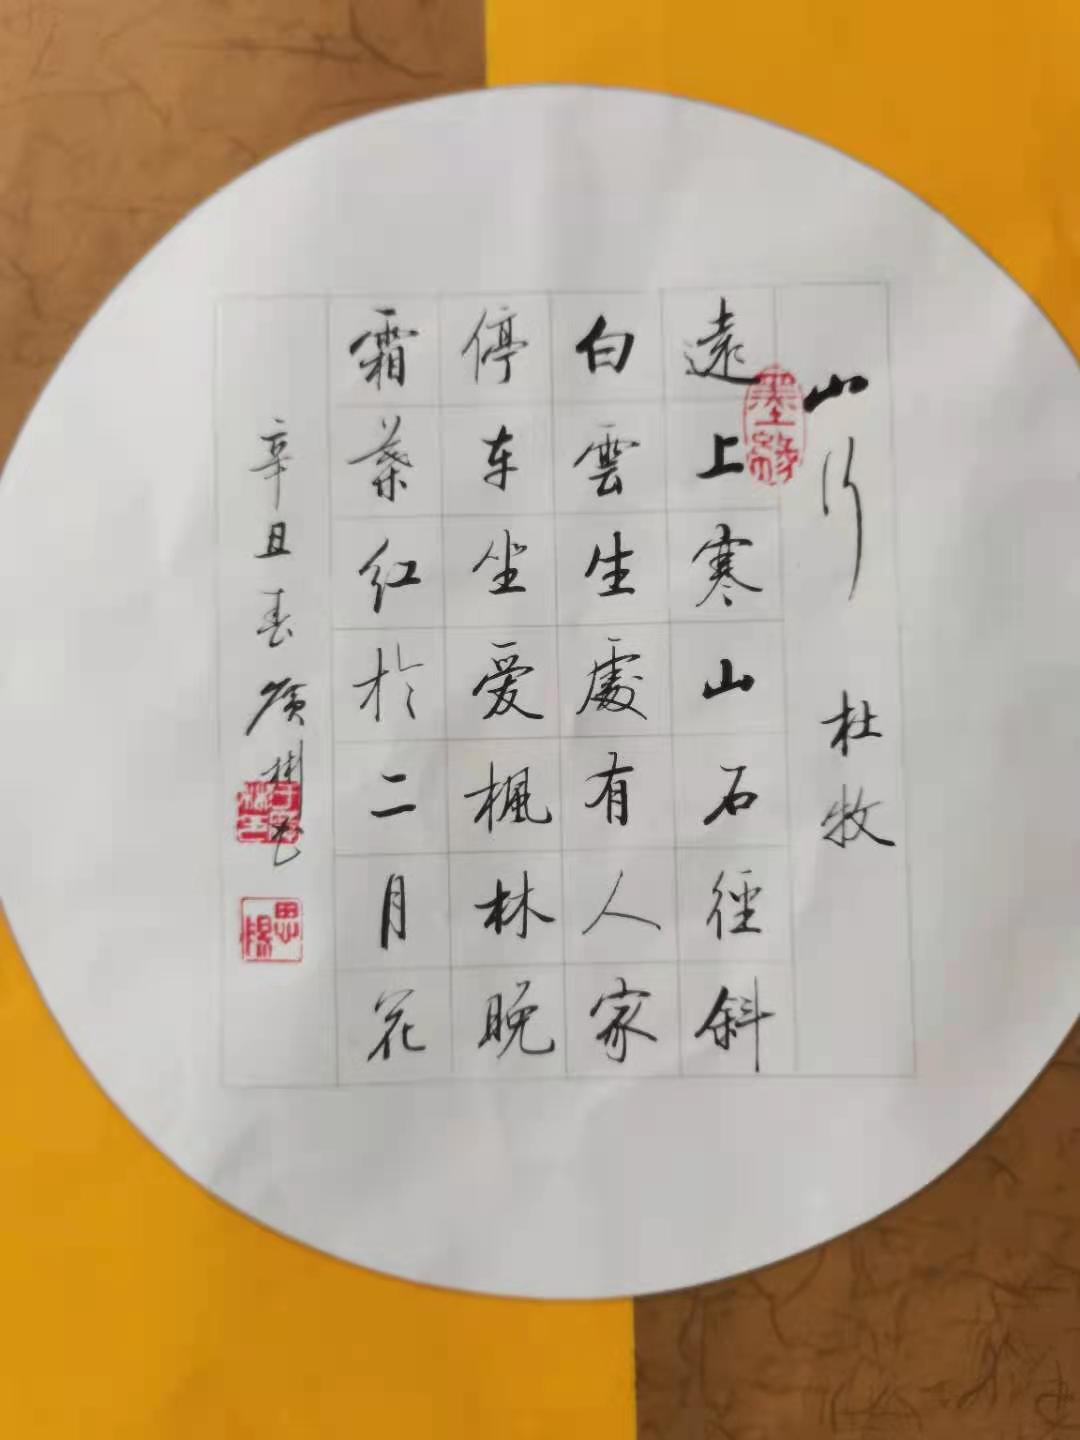 山行 杜牧
遠上寒山石徑斜
白雲生處有人家
停车坐爱楓林晚
霜葉红於二月花
辛丑春广彬书
墨緣